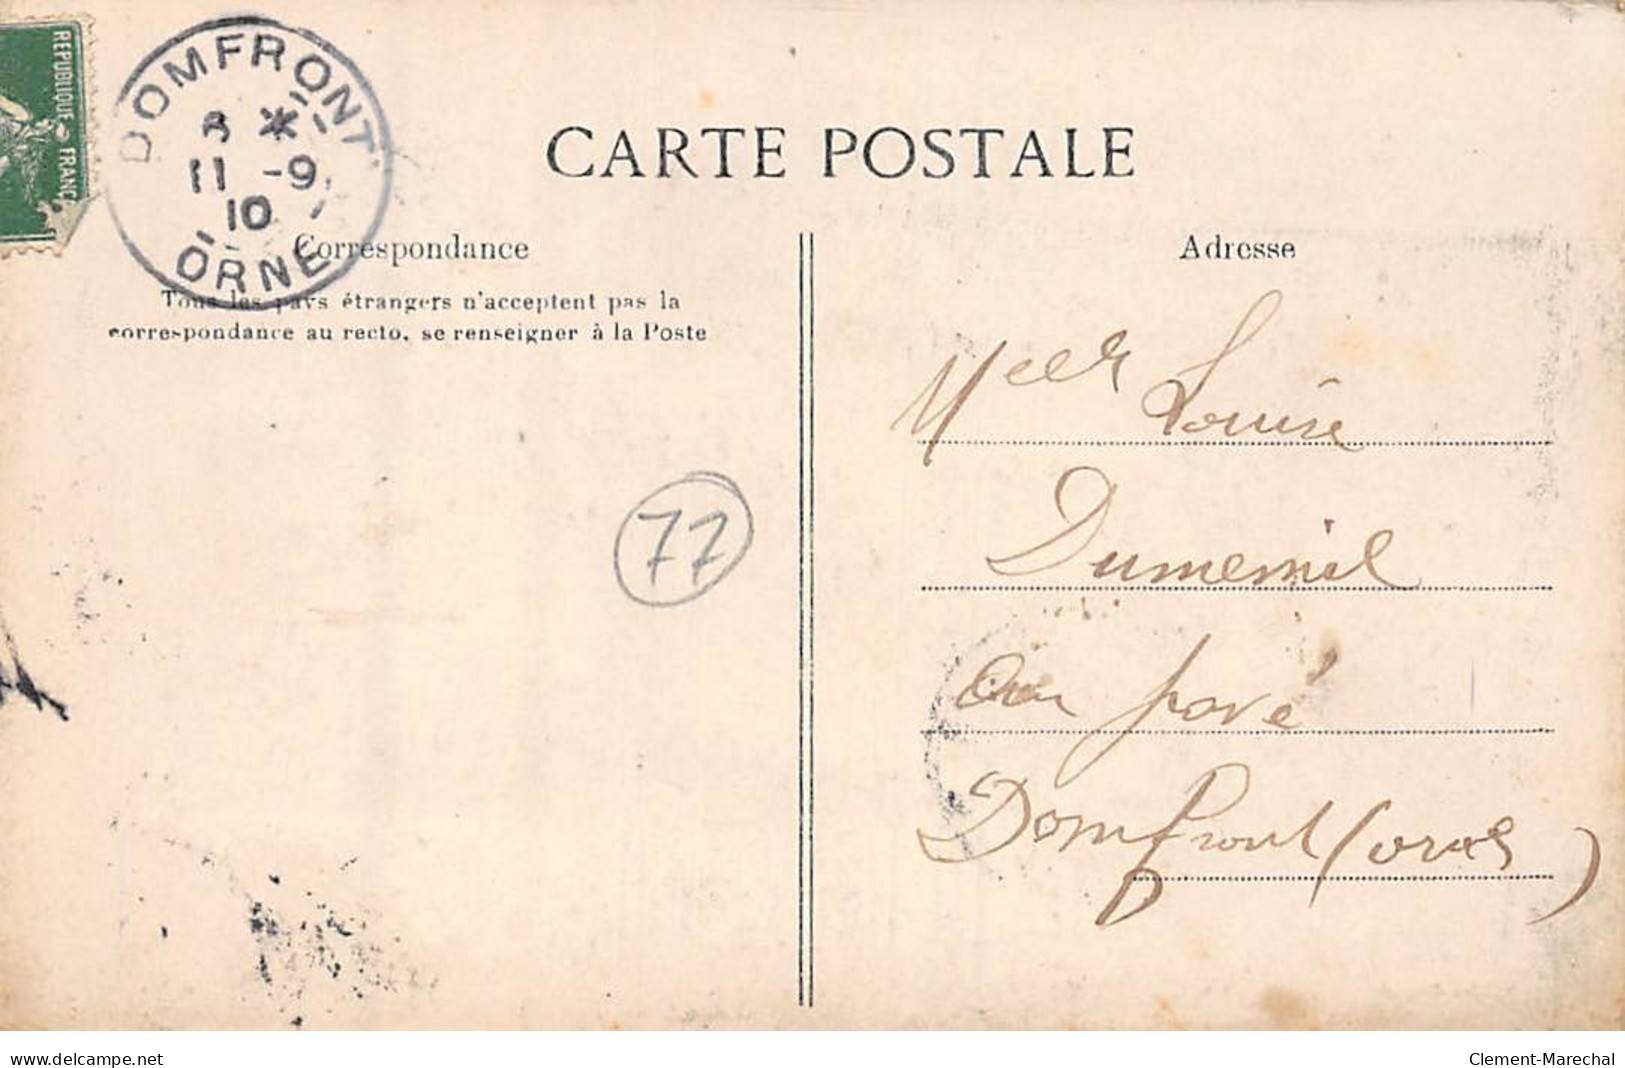 REPUBLIQUE FRANC
DOMFRONT
8 *
11 -9
10
ORNE
CARTE POSTALE
Correspondance
Tous les pays étrangers n'acceptent pas la
correspondance au recto, se renseigner à la Poste
77
Adresse
Melle Louise
Dumemil
au pavé
Domfront (orne)
www.delcampe.net
Clement-Marechal